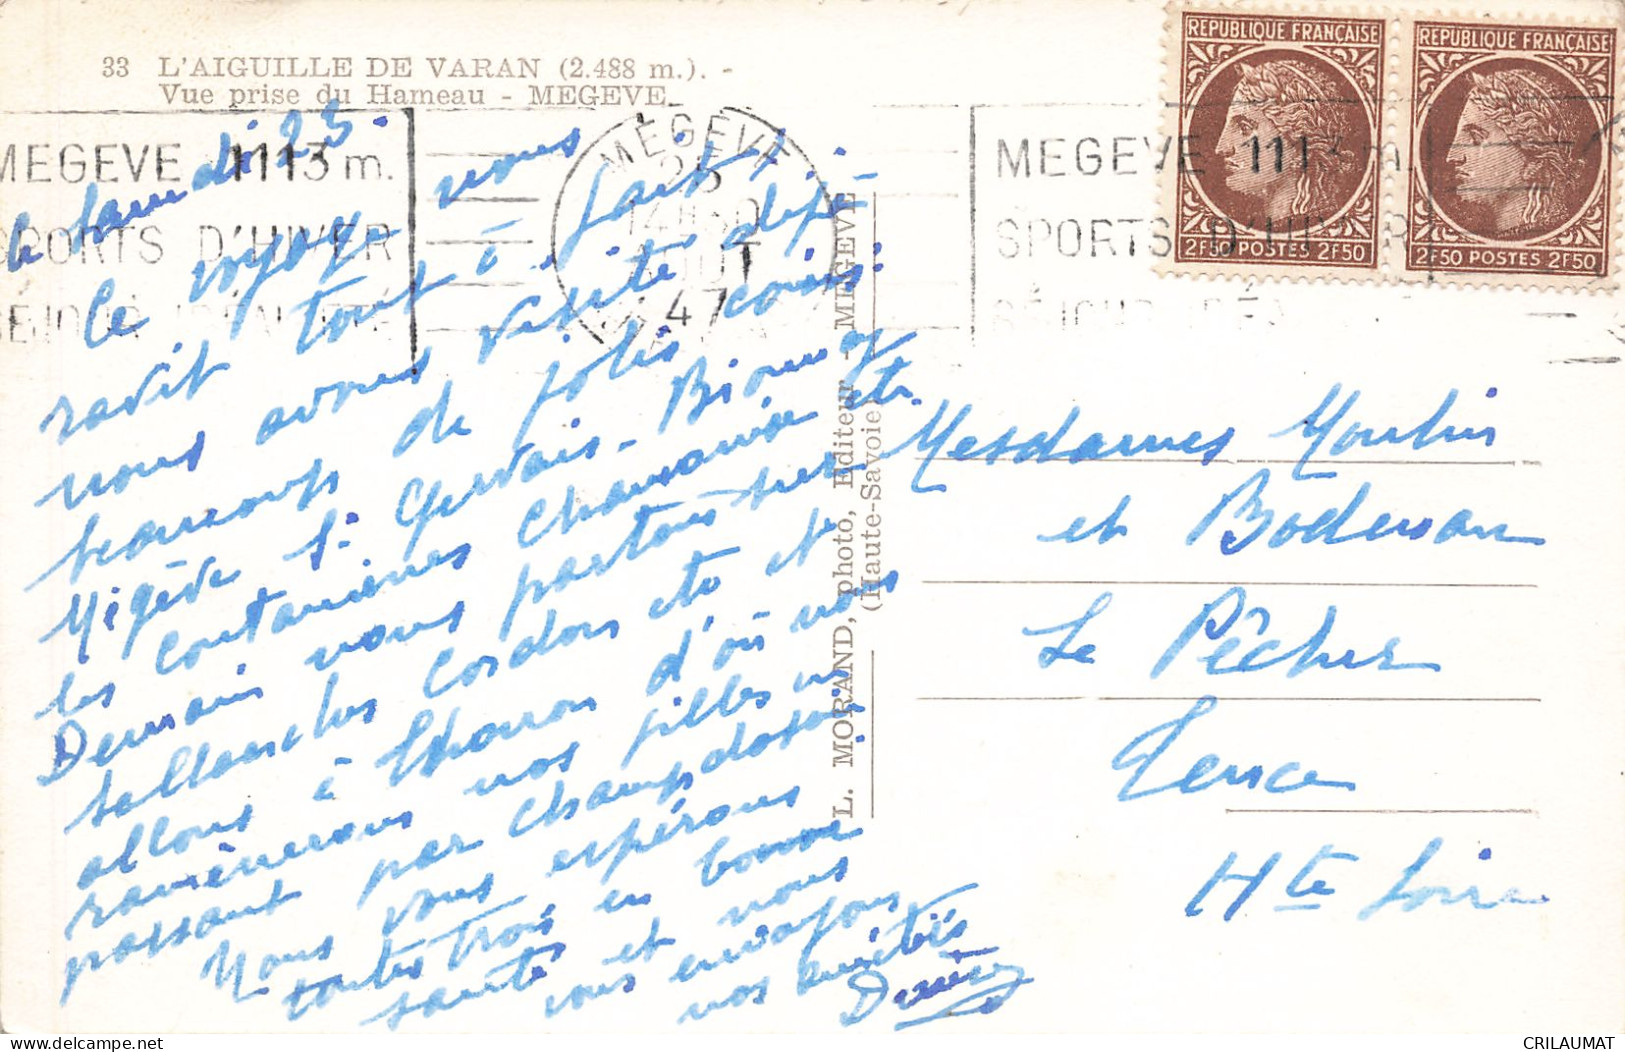 33 L'AIGUILLE DE VARAN (2.488 m.). -
Vue prise du Hameau - MEGEVE
MEGEVE 1113 m.
SPORTS D'HIVER
MEGEVE
25
AOUT
47
MEGEVE 1113 m.
SPORTS D'HIVER
REPUBLIQUE FRANÇAISE
2F50 POSTES 2F50
REPUBLIQUE FRANÇAISE
2F50 POSTES 2F50
le samedi 23.
Ce voyage vous
ravit tout à fait !
nous avons visité déjà
beaucoup de jolis coins:
Megève St Gervais - Bionnay
les Contamines Chamonix etc.
Demain nous partons sur
Sallanches Cordon etc et
allons à Thonon d'où nous
ramènerons nos filles en
passant par Champ
Nous vous espérons
toutes trois en bonne
santé et nous
vous envoyons
nos amitiés
L. MORAND, photo, Editeur - MEGEVE
(Haute-Savoie)
Mesdames Moulin
et
Le Pêcher
Tence
Hte Loire
CRILAUMAT